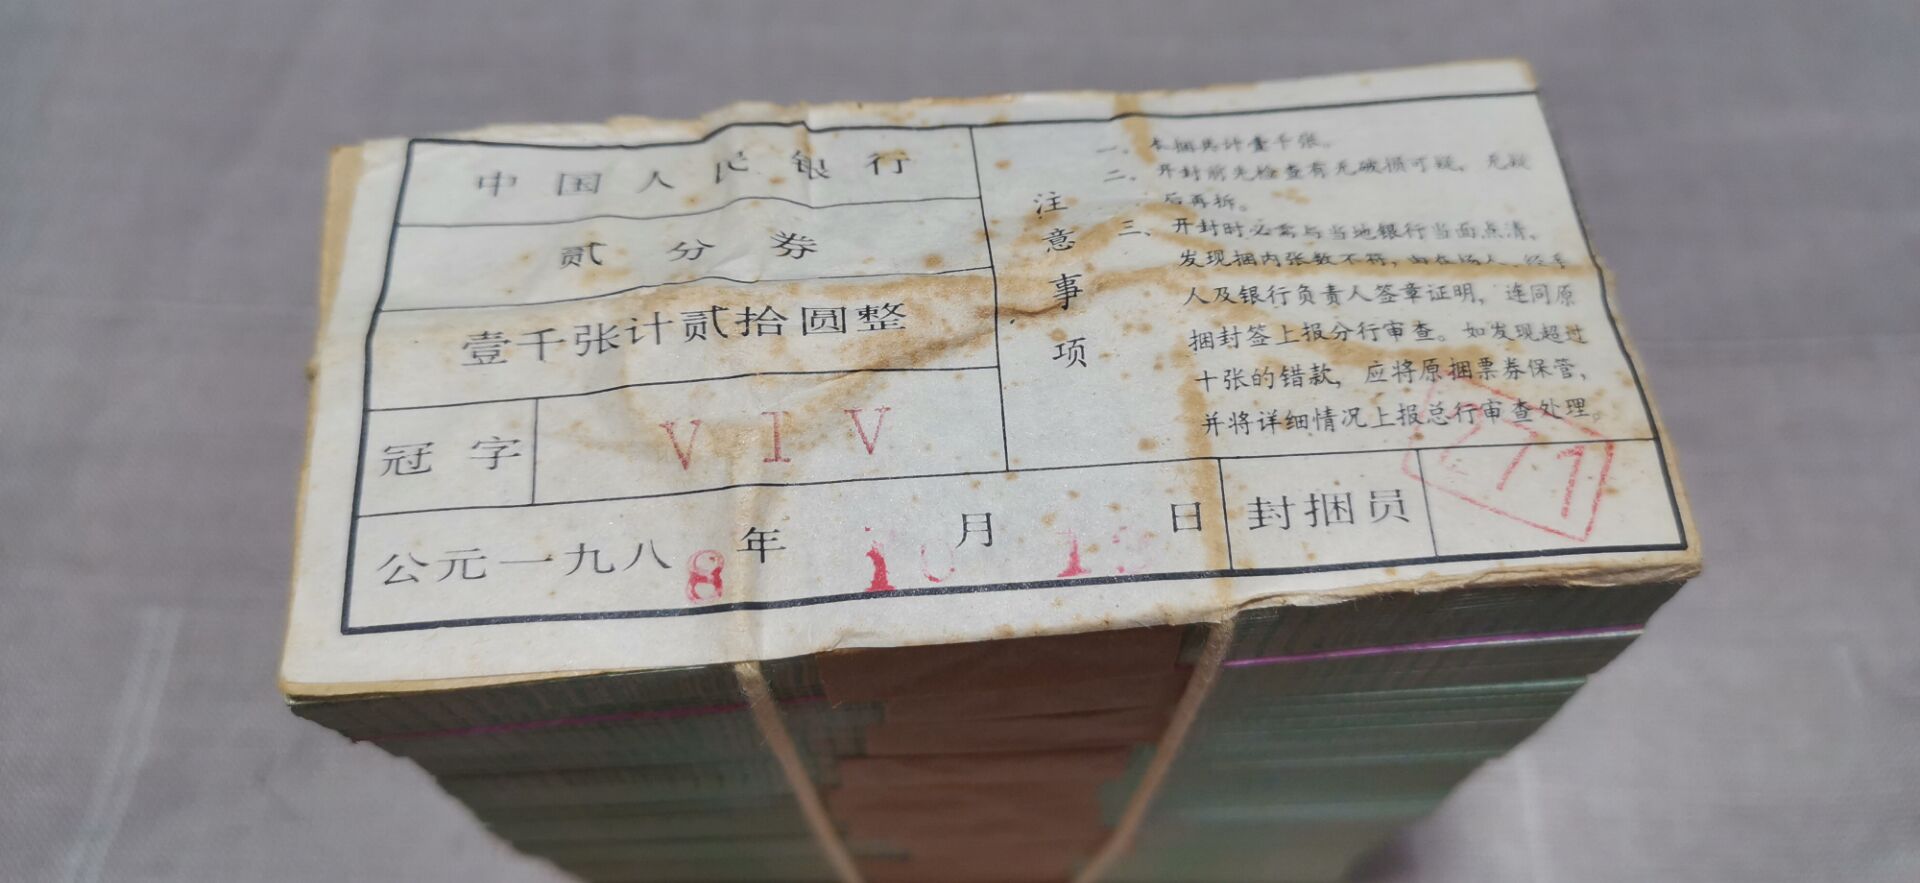 中国人民银行
贰分券
壹千张计贰拾圆整
冠字 VIV
公元一九八8年10月13日
封捆员
注意事项
一、本捆共计壹千张。
二、开封前先检查有无破损可疑，无疑
后再拆。
三、开封时必需与当地银行当面点清，
发现捆内张数不符，由在场人、经手
人及银行负责人签章证明，连同原
捆封签上报分行审查。如发现超过
十张的错款，应将原捆票券保管，
并将详细情况上报总行审查处理。